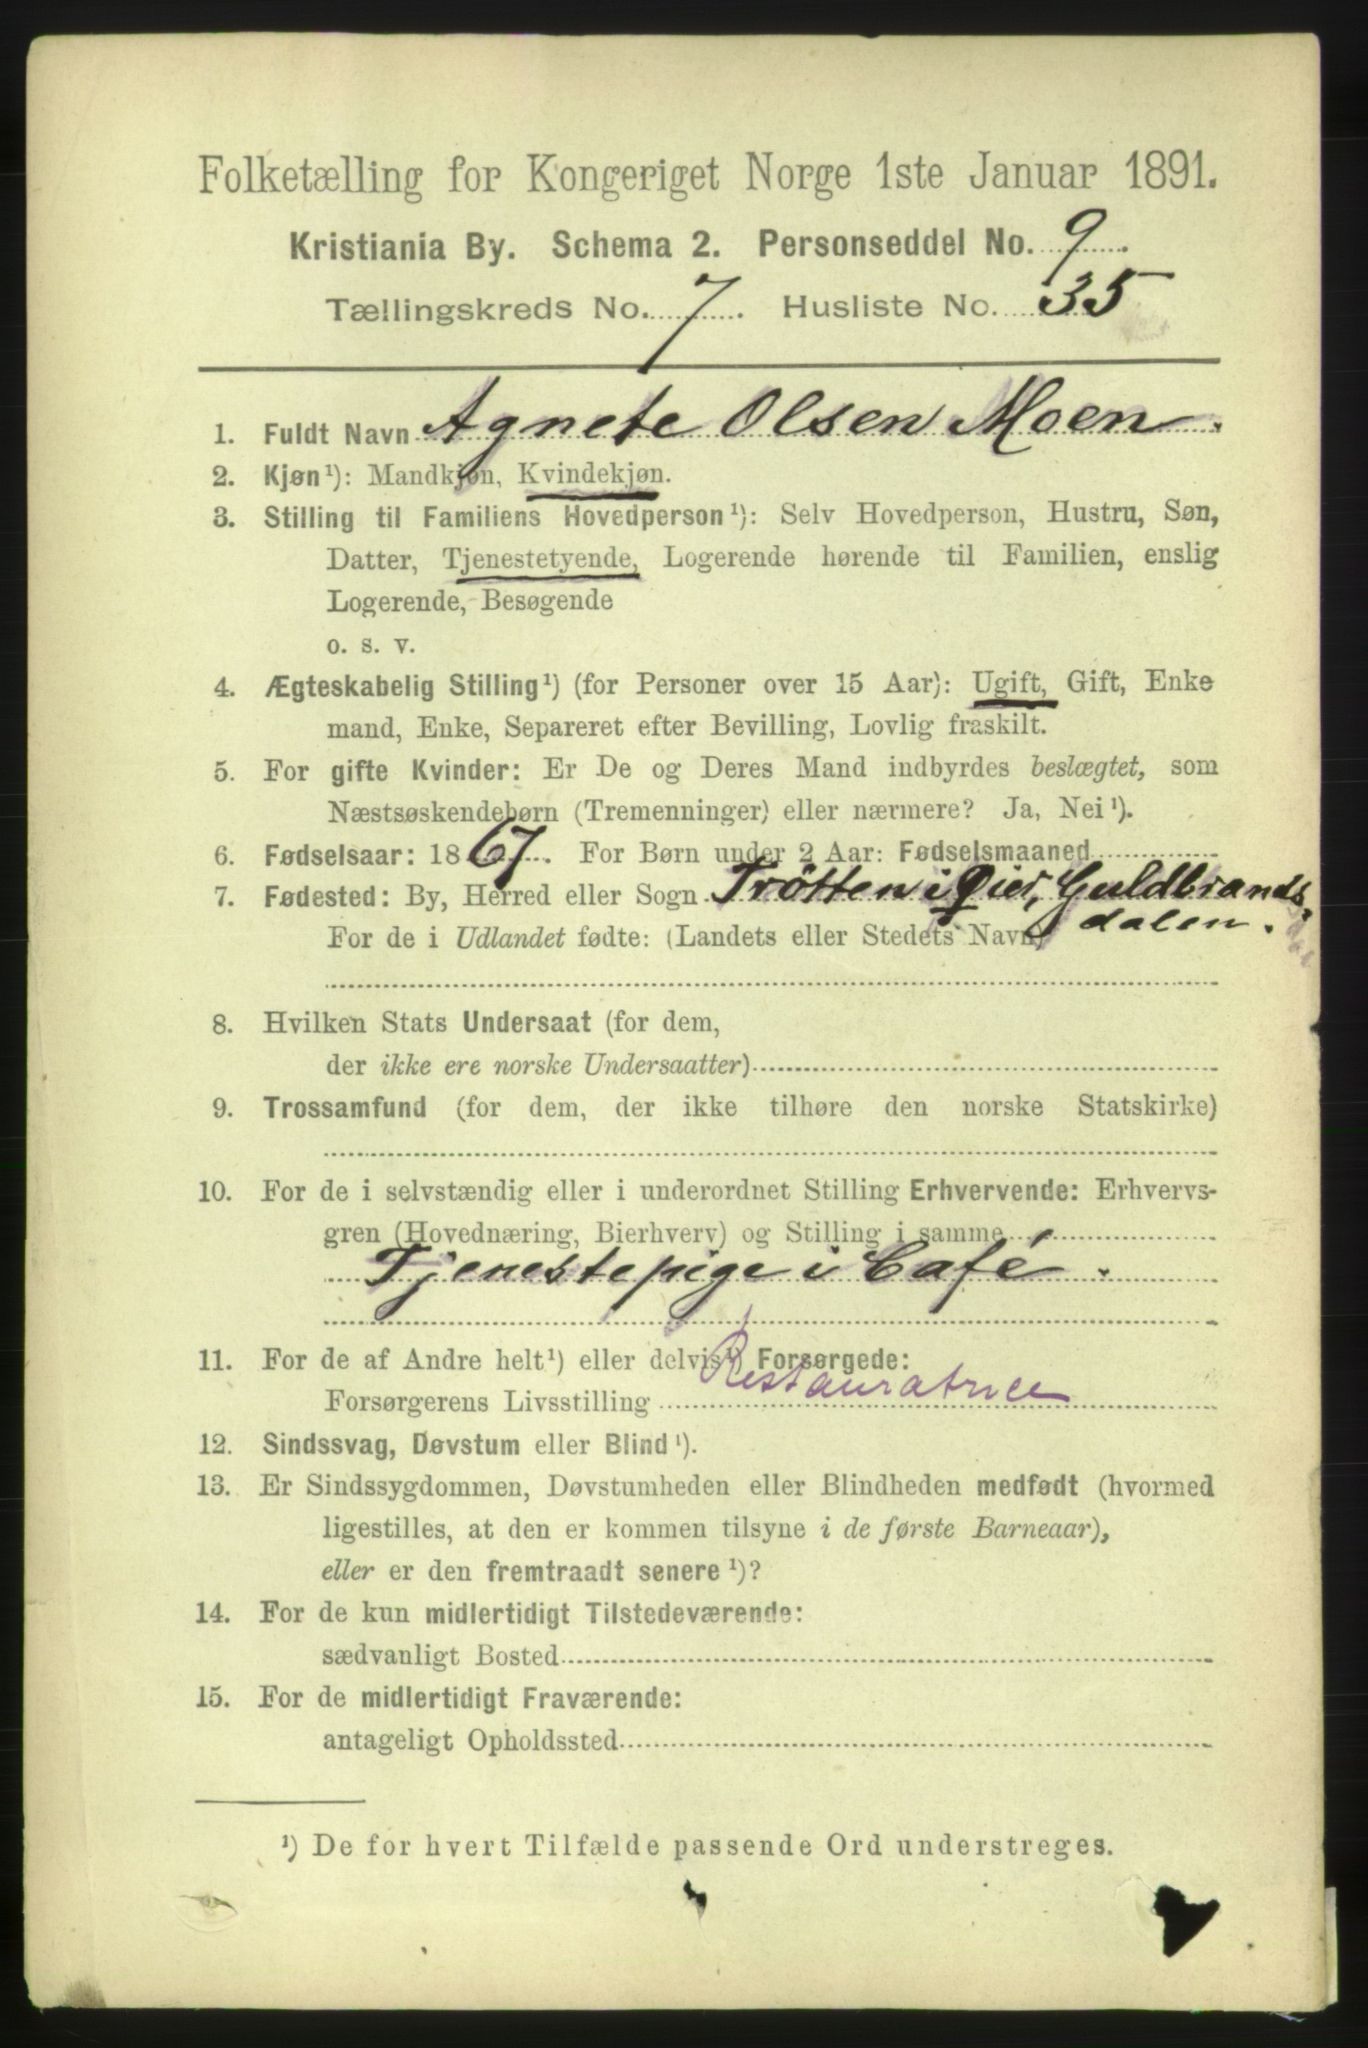 Folketælling for Kongeriget Norge 1ste Januar 1891.
Kristiania By. Schema 2. Personseddel No. 9.
Tællingskreds No. 7. Husliste No. 35
1. Fuldt Navn Agnete Olsen Moen.
2. Kjøn¹): Mandkjøn, Kvindekjøn.
3. Stilling til Familiens Hovedperson¹): Selv Hovedperson, Hustru, Søn,
Datter, Tjenestetyende, Logerende hørende til Familien, enslig
Logerende, Besøgende
o. s. v.
4. Ægteskabelig Stilling¹) (for Personer over 15 Aar): Ugift, Gift, Enke
mand, Enke, Separeret efter Bevilling, Lovlig fraskilt.
5. For gifte Kvinder: Er De og Deres Mand indbyrdes beslægtet, som
Næstsøskendebørn (Tremenninger) eller nærmere? Ja, Nei¹).
6. Fødselsaar: 1867. For Børn under 2 Aar: Fødselsmaaned
7. Fødested: By, Herred eller Sogn Trötten i Øier, Guldbrands-
dalen.
For de i Udlandet fødte: (Landets eller Stedets Navn)
8. Hvilken Stats Undersaat (for dem,
der ikke ere norske Undersaatter)
9. Trossamfund (for dem, der ikke tilhøre den norske Statskirke)
10. For de i selvstændig eller i underordnet Stilling Erhvervende: Erhvervs-
gren (Hovednæring, Bierhverv) og Stilling i samme
Tjenestepige i Café.
11. For de af Andre helt¹) eller delvis¹) Forsørgede:
Restauratrice
Forsørgerens Livsstilling
12. Sindssvag, Døvstum eller Blind¹).
13. Er Sindssygdommen, Døvstumheden eller Blindheden medfødt (hvormed
ligestilles, at den er kommen tilsyne i de første Barneaar),
eller er den fremtraadt senere¹)?
14. For de kun midlertidigt Tilstedeværende:
sædvanligt Bosted
15. For de midlertidigt Fraværende:
antageligt Opholdssted
¹) De for hvert Tilfælde passende Ord understreges.